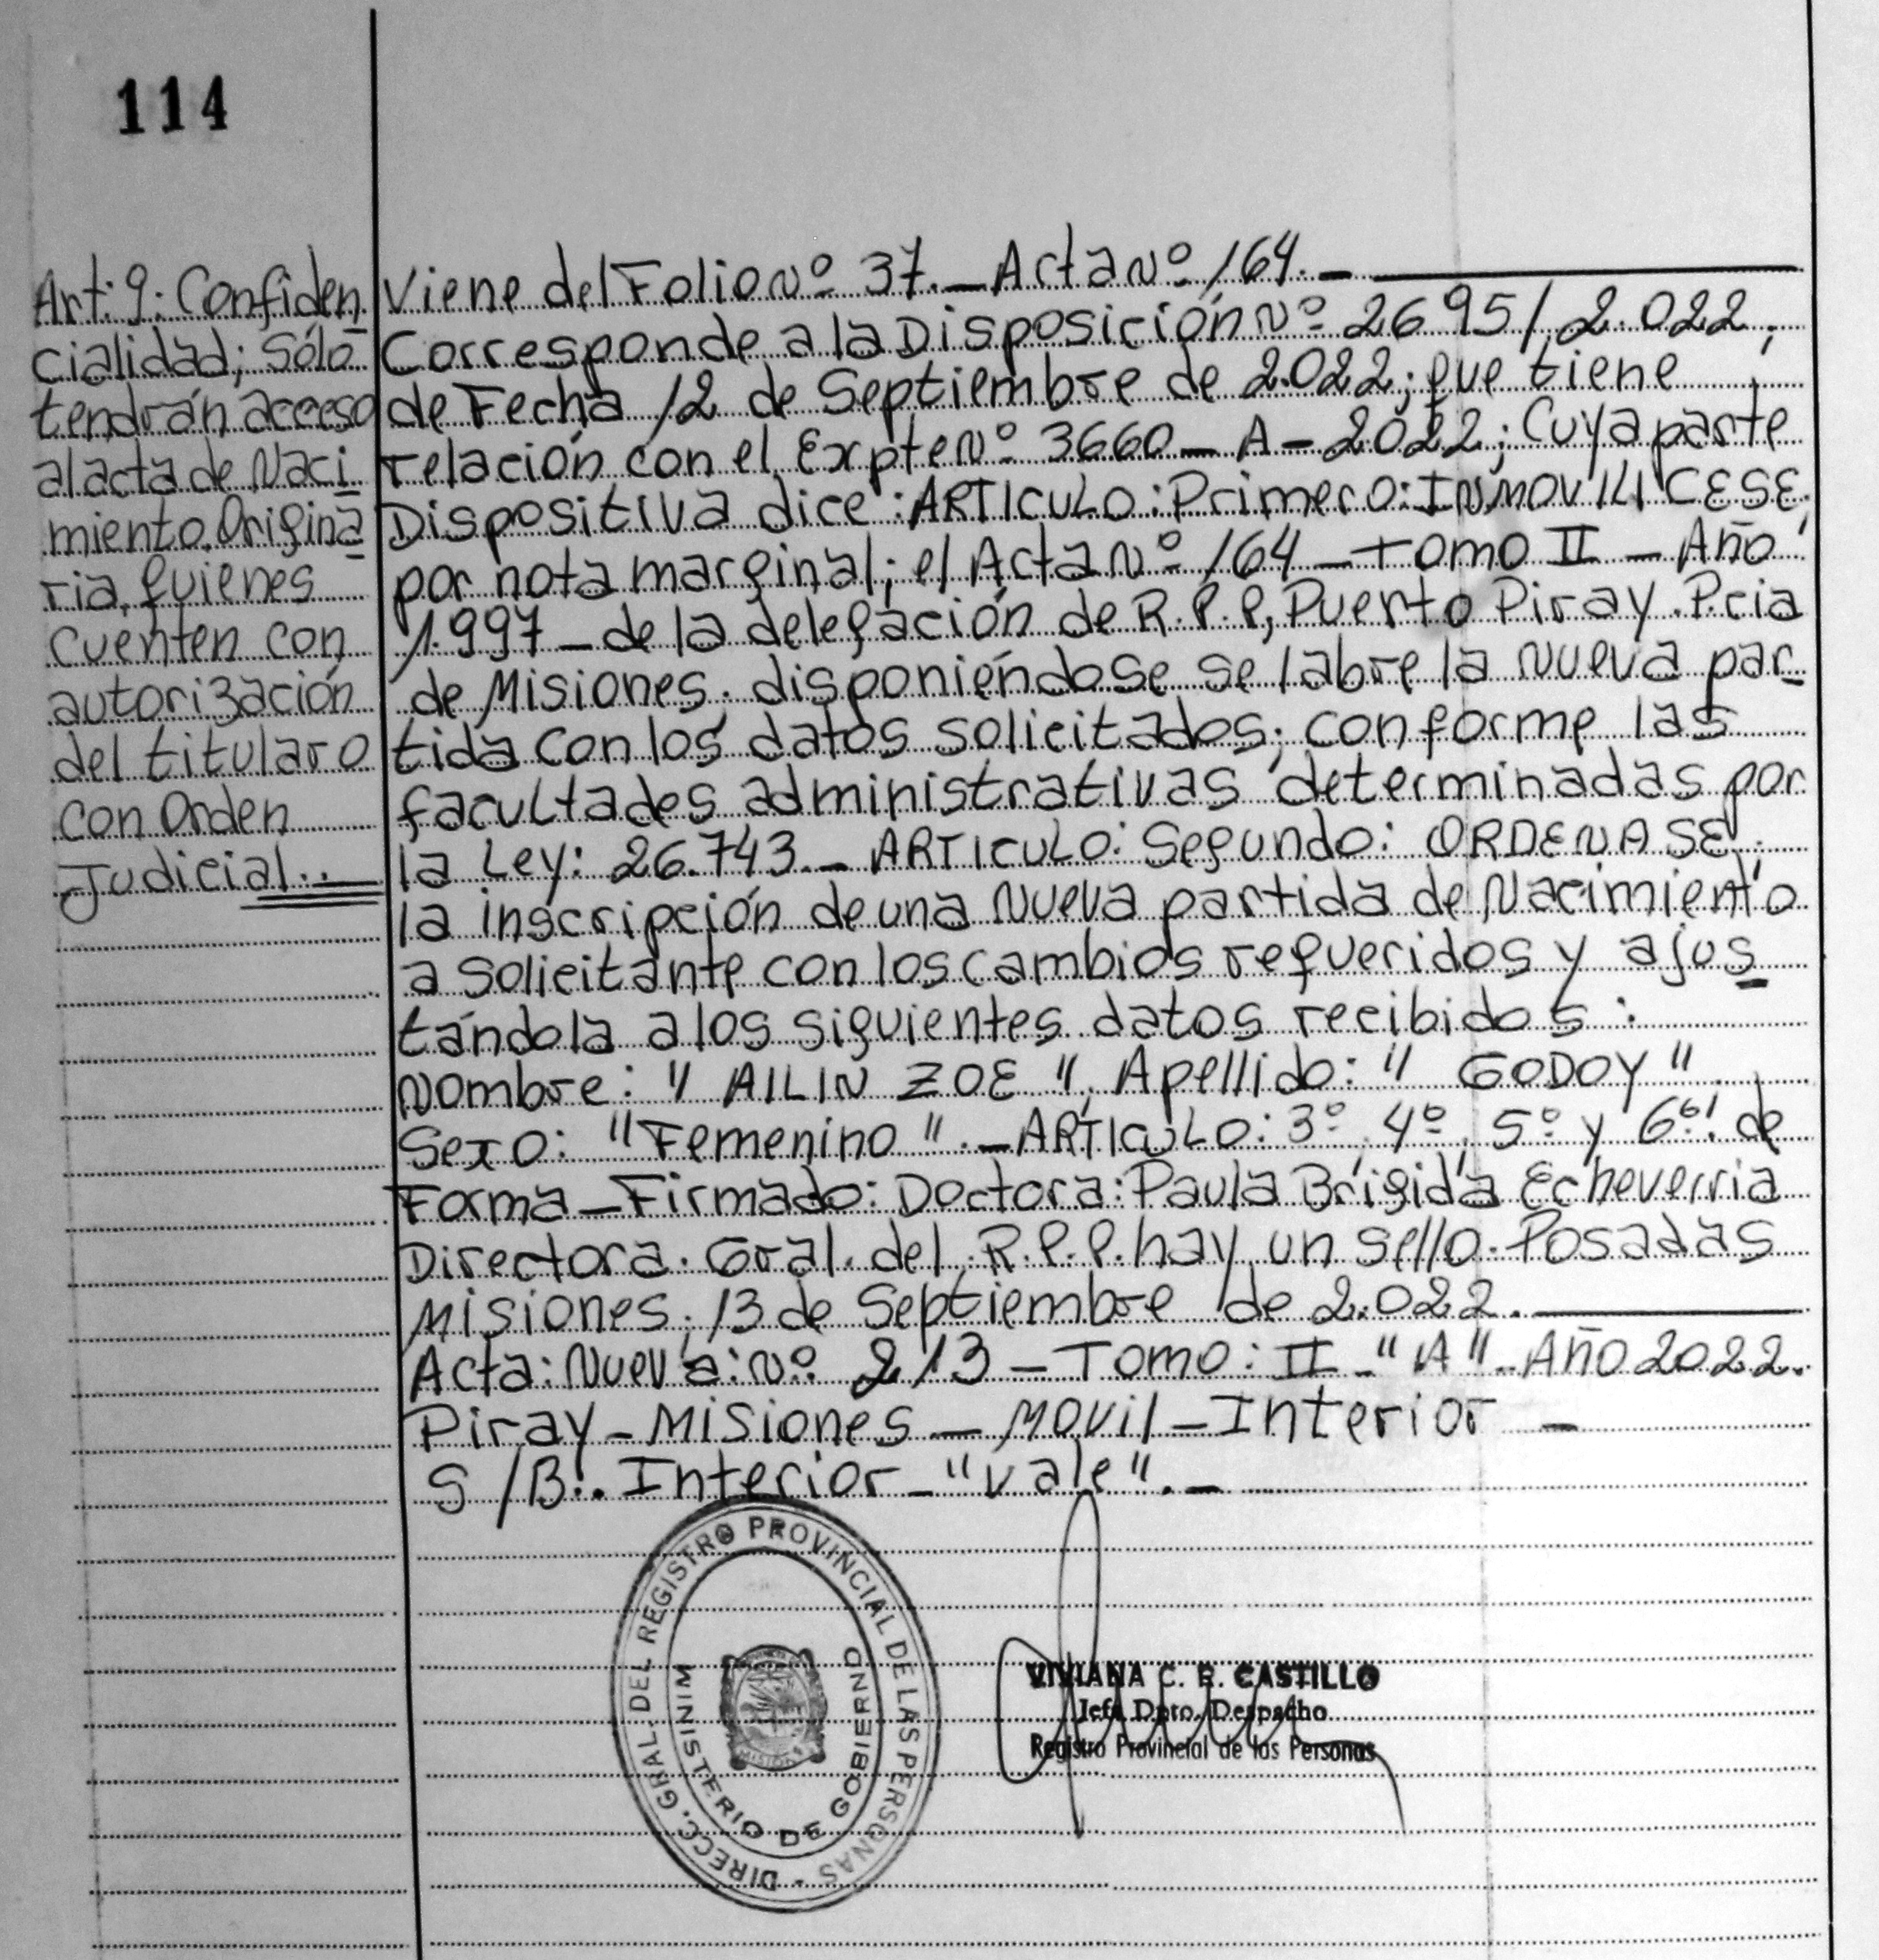 114
Art: 9: Confiden
cialidad; Sólo
tendrán acceso
al acta de Naci
miento. Origina
ria, quienes
cuenten con
autorización
del titular o
con Orden
Judicial..
Viene del Folio Nº 37.- Acta Nº 164.-
Corresponde a la Disposición Nº 2695/2.022;
de Fecha 12 de Septiembre de 2.022; que tiene
relación con el Expte Nº 3660-A-2022; Cuya parte
Dispositiva dice: ARTICULO: Primero: INMOVILICESE,
por nota marginal; el Acta Nº 164-Tomo II - Año
1.997-de la delegación de R.P.P, Puerto Piray. Pcia
de Misiones. disponiéndose se labre la nueva par
tida con los datos solicitados; conforme las
facultades administrativas determinadas por
la Ley: 26.743.- ARTICULO: Segundo: ORDENASE;
la inscripción de una nueva partida de Nacimiento
a solicitante con los cambios requeridos y ajus
tándola a los siguientes datos recibidos:
Nombre: "AILIN ZOE", Apellido: "GODOY"
Sexo: "Femenino".-ARTICULO: 3º, 4º, 5º y 6º. de
Forma-Firmado: Doctora: Paula Brigida Echeverria
Directora. Gral. del R.P.P. hay un sello. Posadas
Misiones, 13 de Septiembre de 2.022.
Acta: Nueva: Nº 213-Tomo: II-"A"-Año 2022.
Piray-Misiones-Movil-Interior-
S/B:. Interior-"vale".-
DIRECC. GRAL. DEL REGISTRO PROVINCIAL DE LAS PERSONAS
MINISTERIO DE GOBIERNO
MISIONES
VIVIANA C. E. CASTILLO
Jefa Dpto. Despacho
Registro Provincial de las Personas